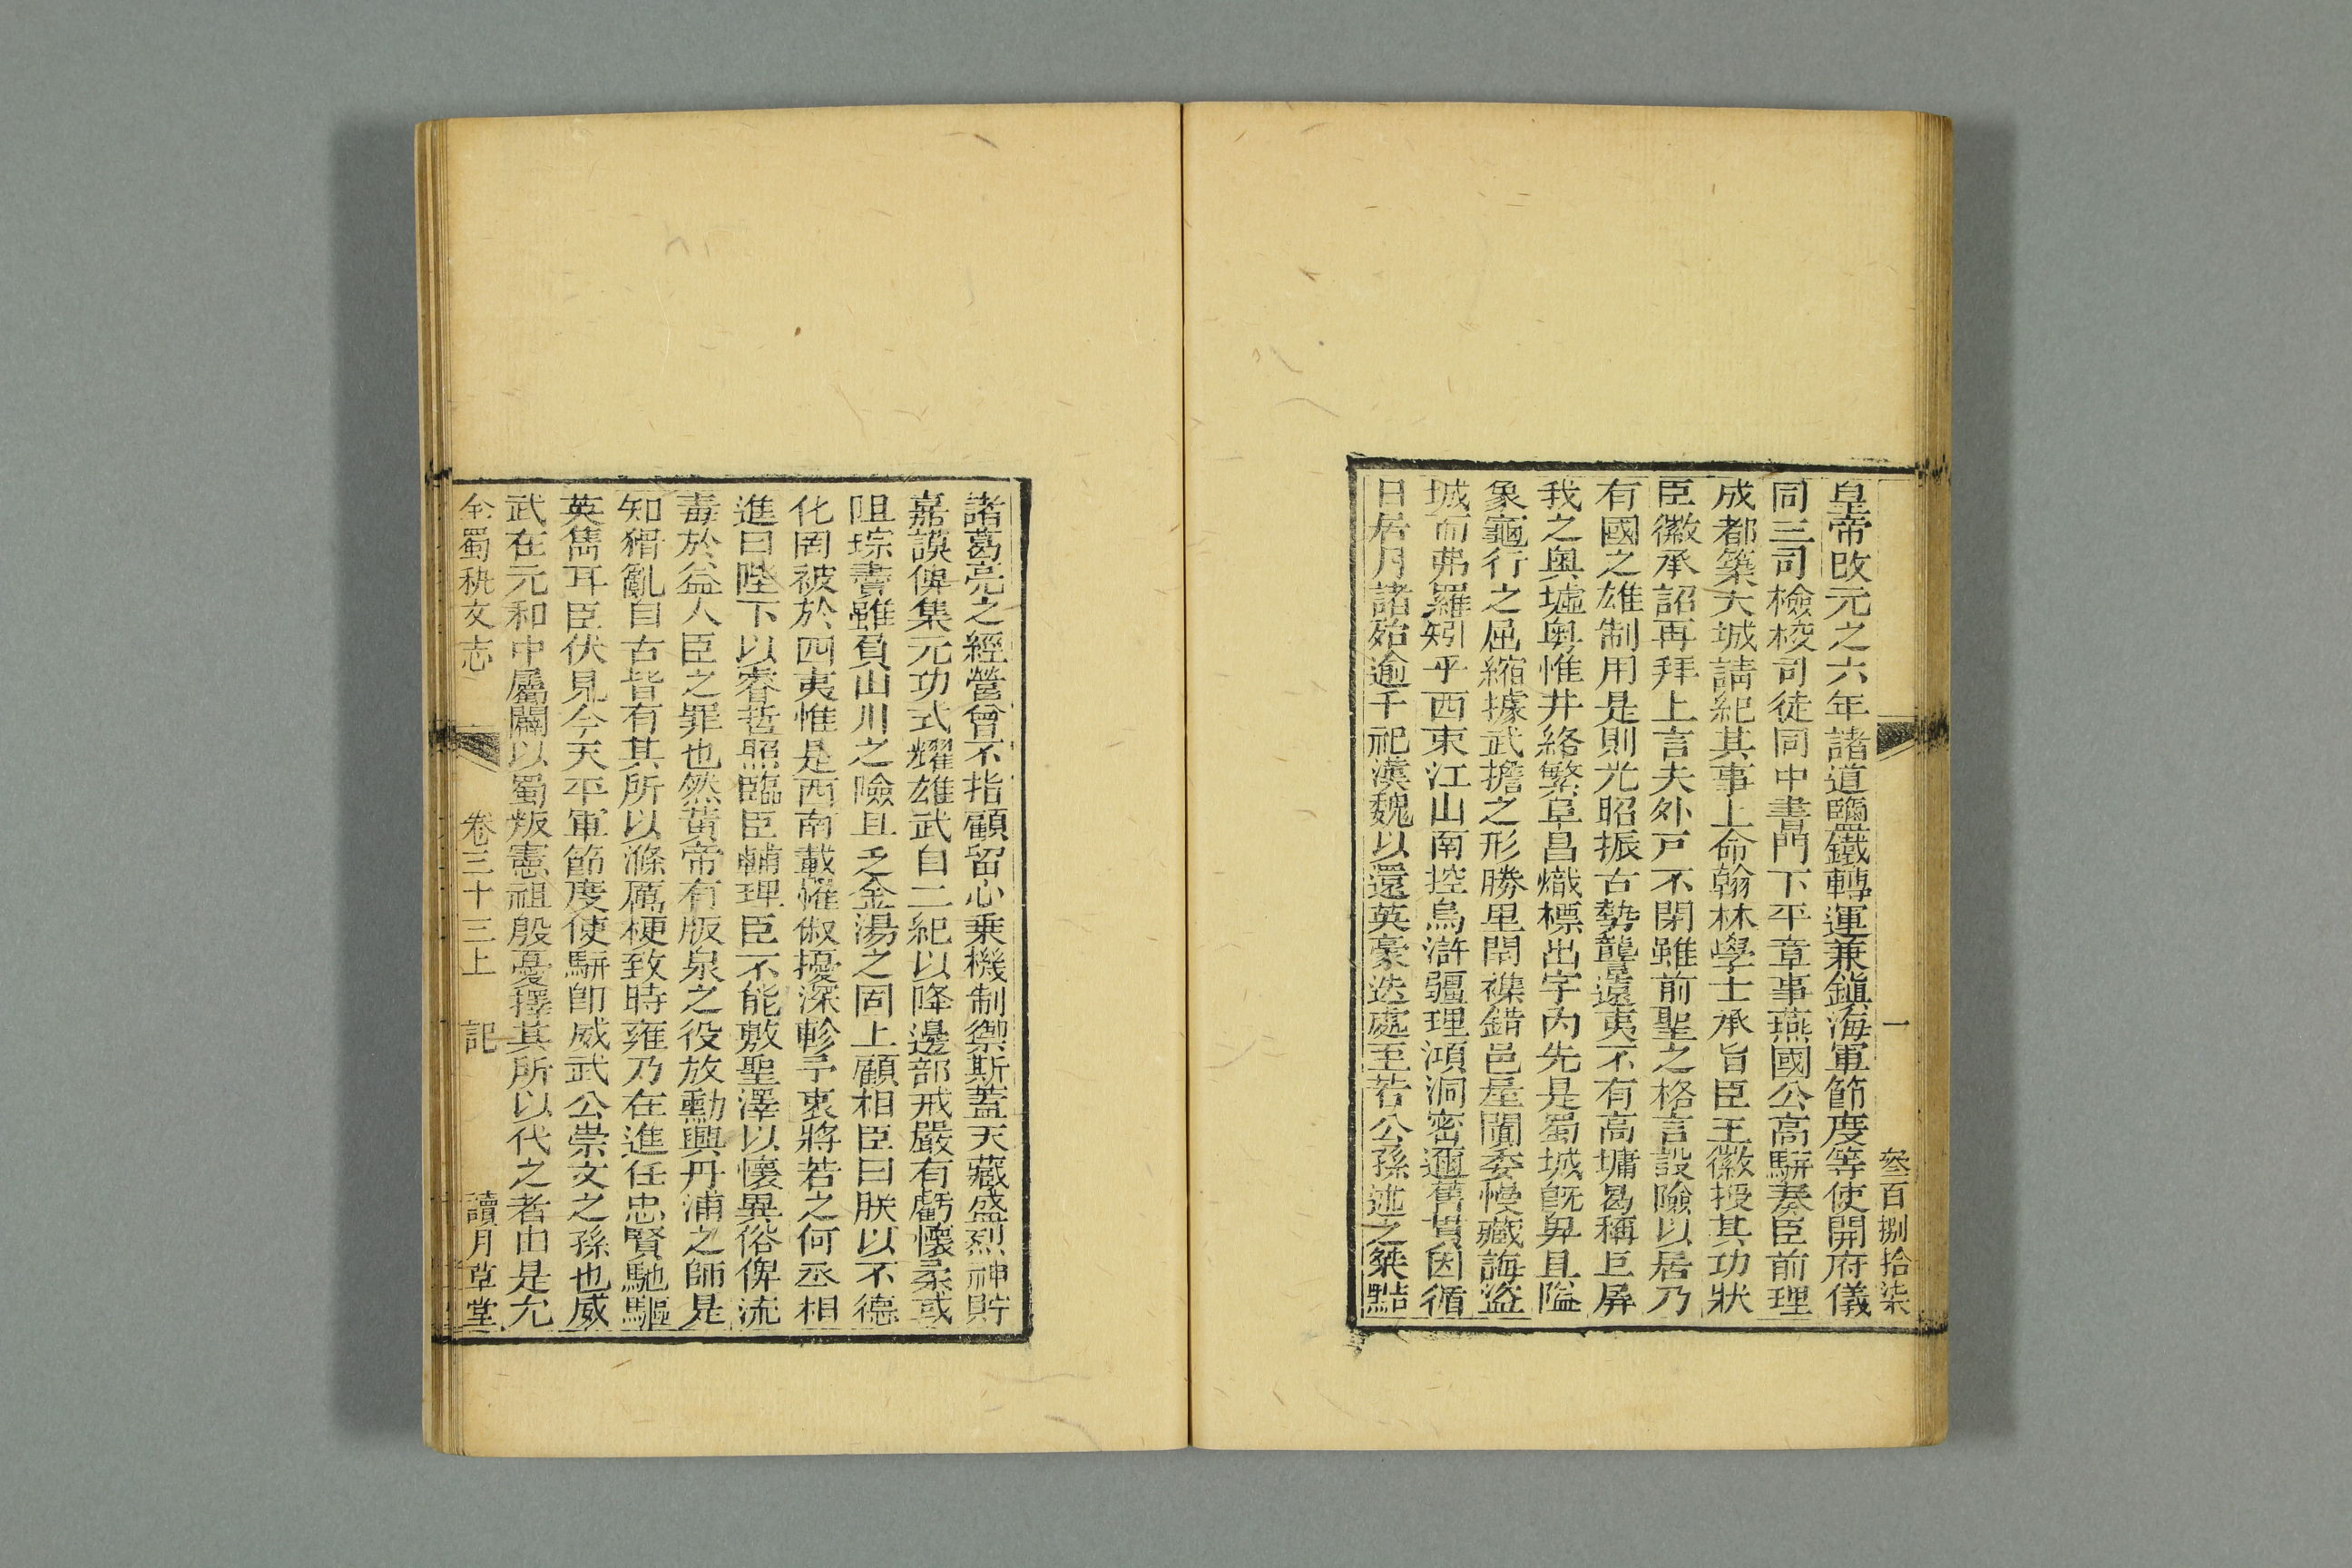 一　叁百捌拾柒
皇帝改元之六年諸道鹽鐵轉運兼鎭海軍節度等使開府儀
同三司檢校司徒同中書門下平章事燕國公高駢奏臣前理
成都築大城請紀其事上命翰林學士承旨臣王徽授其功狀
臣徽承詔再拜上言夫外戸不閉雖前聖之格言設險以居乃
有國之雄制用是則光昭振古勢讋遠夷不有高墉曷稱巨屏
我之奥墟奥惟井絡繁阜昌熾標出宇内先是蜀城旣卑且隘
象龜行之屈縮據武擔之形勝里閈襍錯邑屋闐委慢藏誨盜
城而弗羅矧乎西束江山南控烏滸疆理澒洞密邇舊貫因循
日居月諸殆逾千祀漢魏以還英豪迭處至若公孫述之桀黠
諸葛亮之經營曾不指顧留心乗機制禦斯蓋天藏盛烈神貯
嘉謨俾集元功式耀雄武自二紀以降邊部戒嚴有虧懷柔或
阻琮賮雖負山川之險且乏金湯之固上顧相臣曰朕以不德
化罔被於四夷惟是西南載懼俶擾深軫予衷將若之何丞相
進曰陛下以睿哲照臨臣輔理臣不能敷聖澤以懷異俗俾流
毒於益人臣之罪也然黃帝有版泉之役放勳興丹浦之師是
知猾亂自古皆有其所以滌厲梗致時雍乃在進任忠賢馳驅
英雋耳臣伏見今天平軍節度使駢卽威武公崇文之孫也威
武在元和中屬闢以蜀叛憲祖殷憂擇其所以代之者由是允
全蜀秇文志　卷三十三上　記　讀月草堂